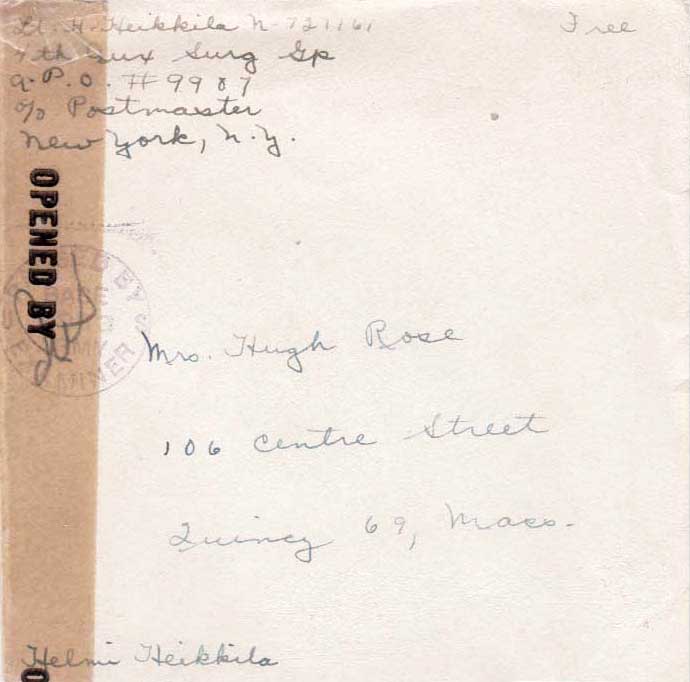 Lt. H. Heikkila N-721161
Free
7th Aux Surg Gp
A.P.O. #9987
c/o Postmaster
New York, N.Y.
OPENED BY
Mrs. Hugh Rose
106 Centre Street
Quincy 69, Mass.
Helmi Heikkila